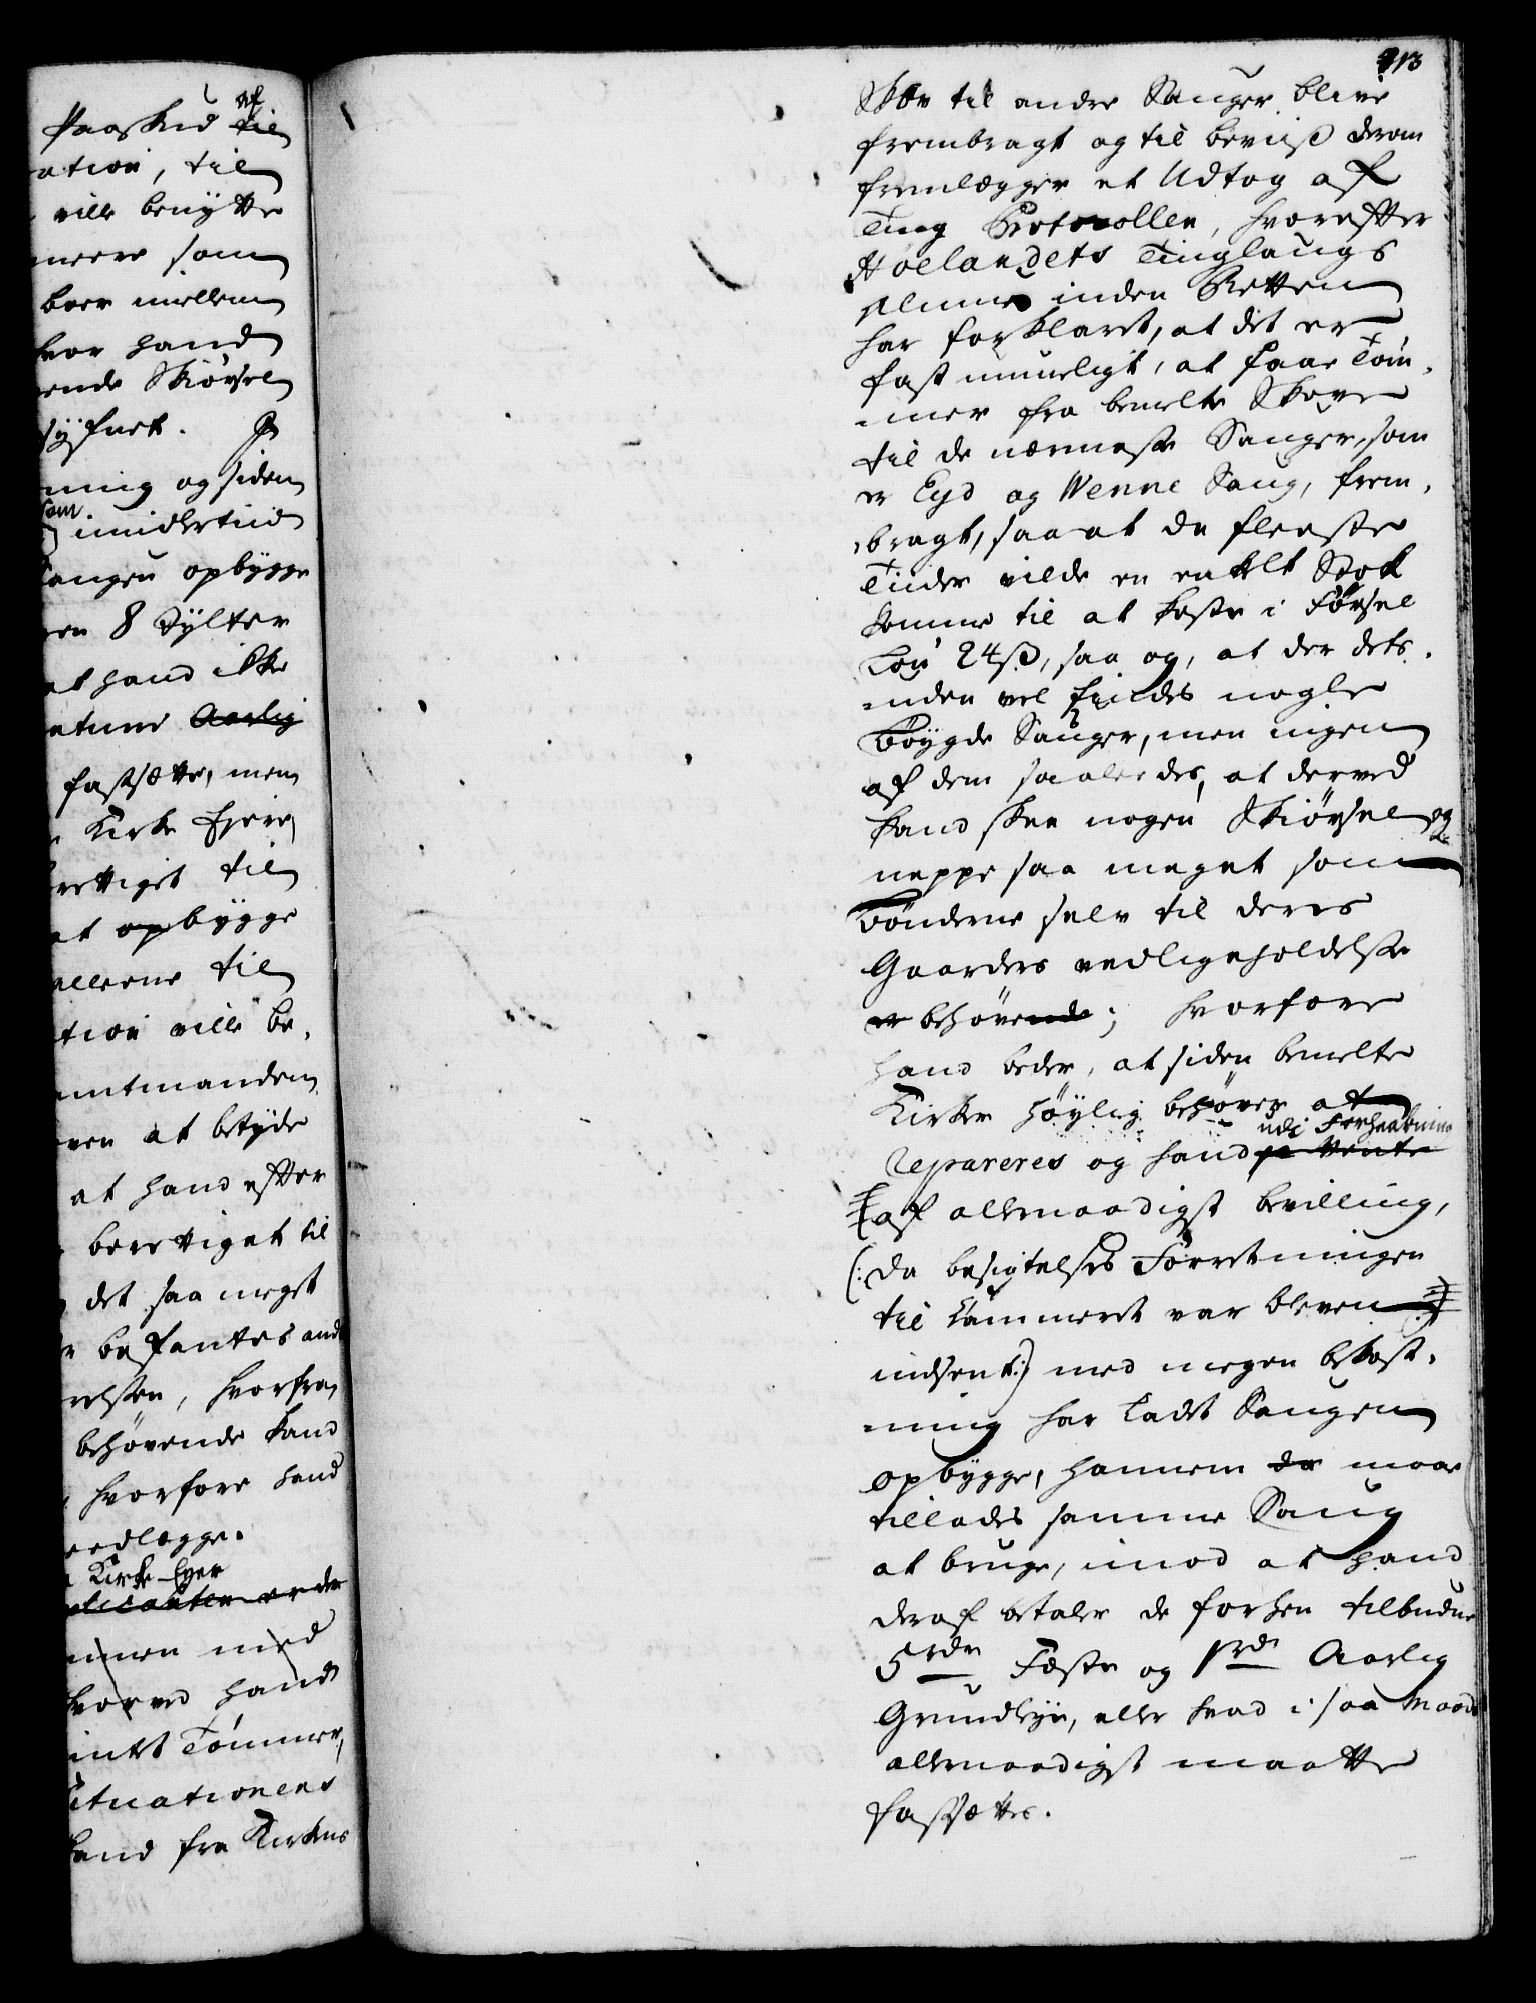 Paaskud af til
ation, til
ville benytte
meere som
boer mellem
hvor hand
ende Skiørsel
syfnet.
ning og siden
som imidlertiid
Saugen opbygge
en 8 Tylter
at hand ikke
Aarlig
fastsætte, men
Kirke Ejere
rettiget til
at opbygge
allerne til
tion ville be,
amtmanden
ven at betyde
at hand efter
berettiget til
det saa meget
befantes and
relsen, hvorfra
behøvende kand
hvorfore hand
nedlægge.
Kirke Eyer
plicanten
men med
hvorved hand
intet Tømmer,
Situationens
kand fra Kirkens
213
Skov til andre Sauger blive
frembragt og til beviiß derom
fremlægger et Udtog af
Ting Protocollen, hvorefter
Høelandets Tinglaugs
Almue inden Retten
har forklaret, at det er
fast umueligt, at faae Tøm,
mer fra bemelte Skove
til de nærmeste Sauger, som
er Eyd og Wenne Saug, frem,
bragt, saa at de fleeste
Tider vilde en enkelt Stok
komme til at koste i Førsel
Løn 24 ß, saa og, at der dets,
uden vel findes nogle
Bøygde Sauger, men ingen
af dem saaledes, at derved
kand skee nogen Skiørsel og
neppe saa meget som
Bønderne selv til deres
Gaarders vedligeholdelse
er behøvende; hvorfore
hand beder, at siden bemelte
Kirke høylig behøver at
repareres og hand udi Forhaabning paa Vente
af allernaadigst bevilling,
(: da besigtelses Forretningen
til Cammeret var bleven
indsent:) med megen bekost,
ning har ladet Saugen
opbygge, hannem da maae
tillades samme Saug
at bruge, imod at hand
deraf betaler de forhen tilbudne
5 rdr Fæste og 1 rdr Aarlig
Grundleye, eller hvad i saa Maade
allernaadigst maatte
fastsættes.